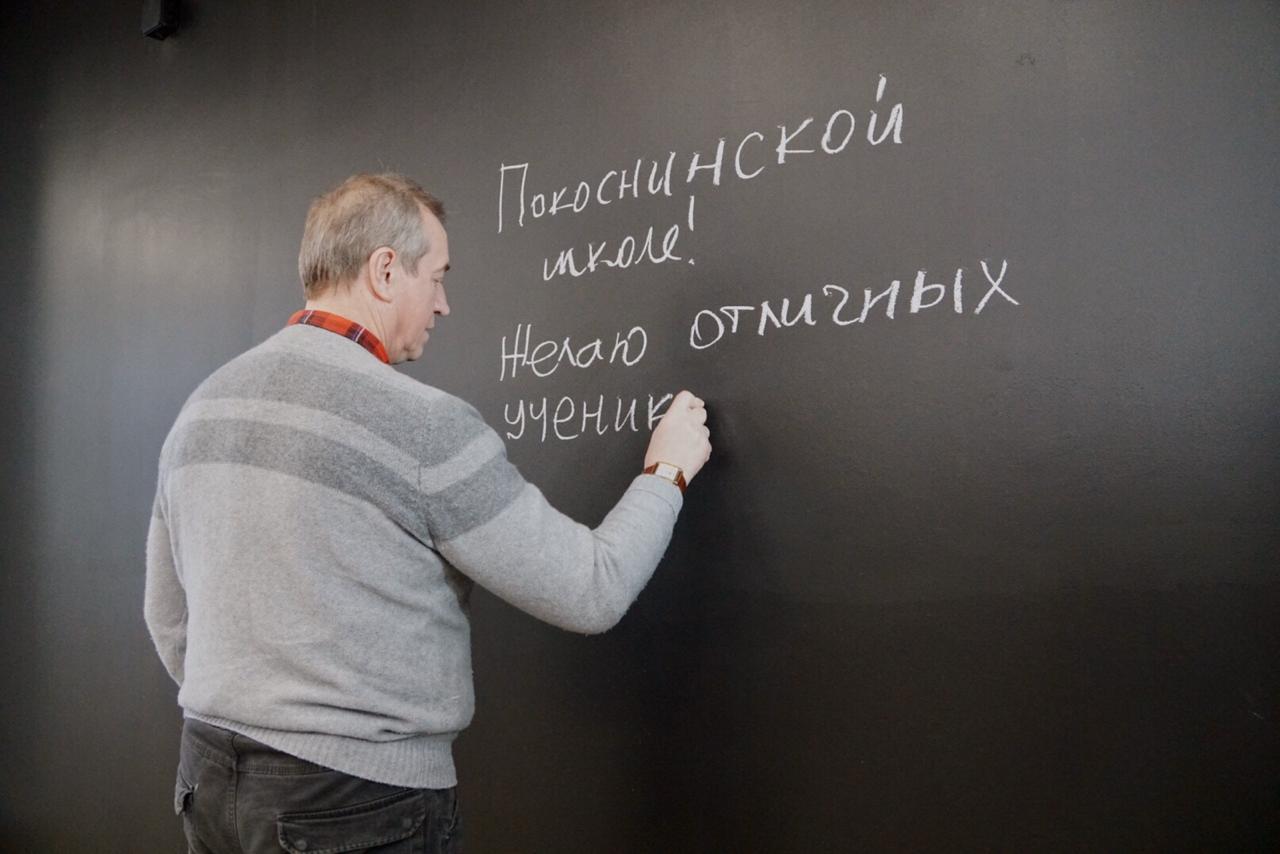 Покоснинской
школе!
Желаю отличных
ученик